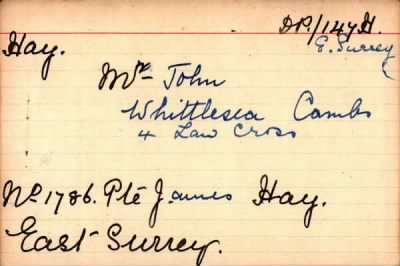 DP/147H.
E. Surrey
Hay.
Mr John
Whittlesea Cambs
4 Law Cross
No 1786. Pte James Hay.
East Surrey.